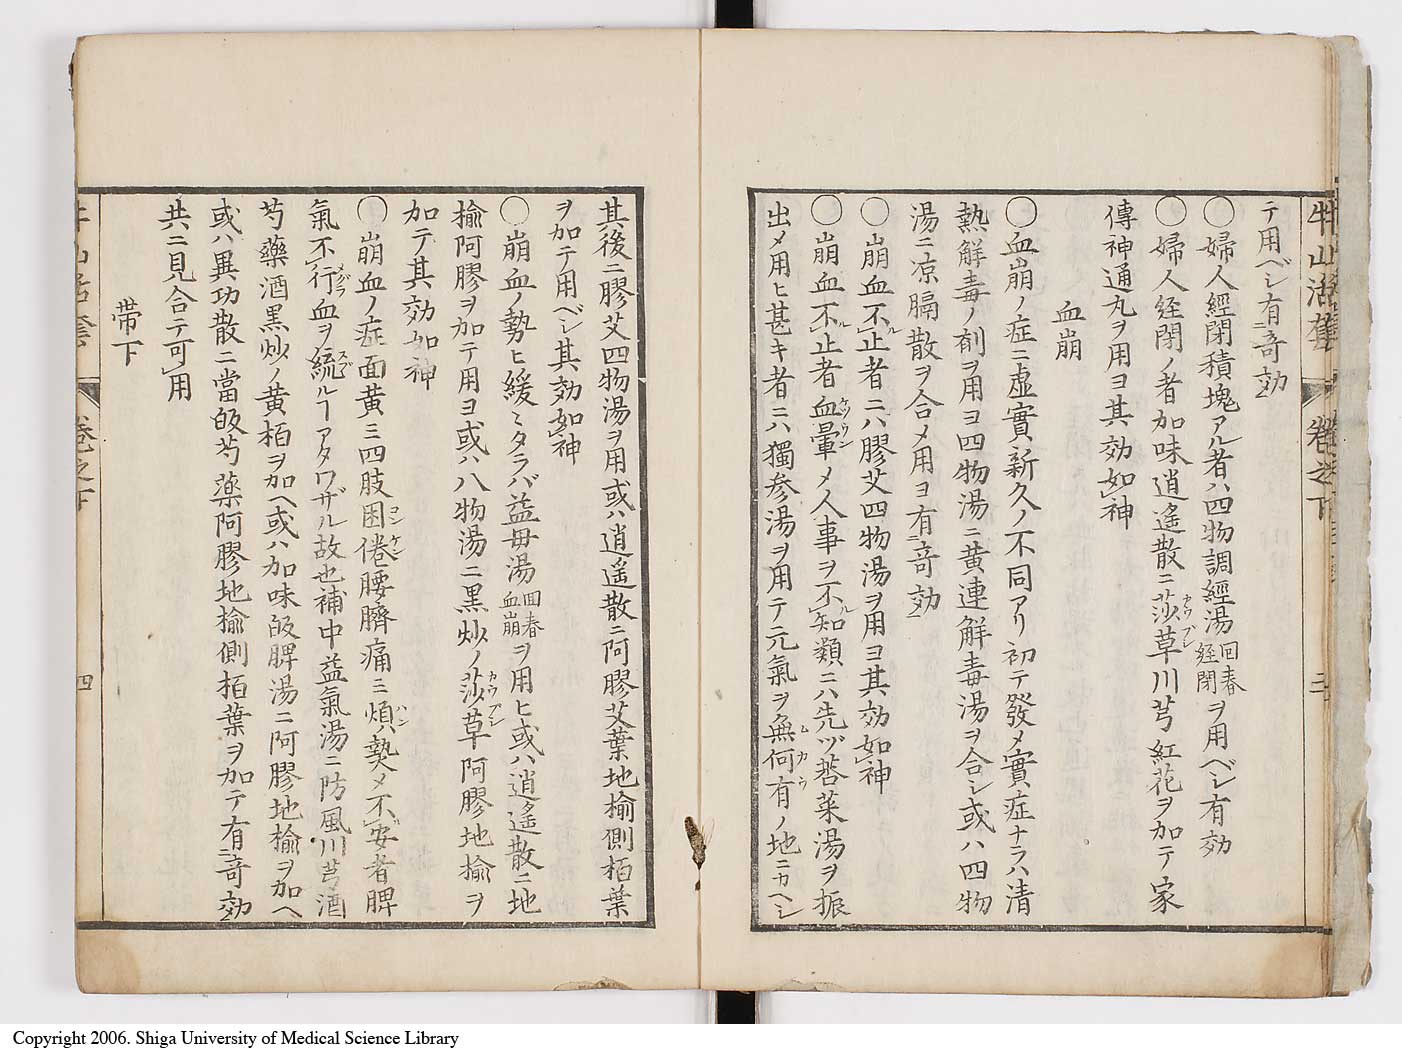 牛山活套 卷之下 三
テ用ベシ有奇効
◯婦人經閉積塊アル者ハ四物調經湯回春経閉ヲ用ベシ有効
◯婦人経閉ノ者加味逍遥散ニ莎草カウブシ川芎紅花ヲ加テ家
傳神通丸ヲ用ヨ其効如神
血崩
◯血崩ノ症ニ虚實新久ノ不同アリ初テ發メ實症ナラハ清
熱解毒ノ剤ヲ用ヨ四物湯ニ黄連解毒湯ヲ合シ或ハ四物
湯ニ凉膈散ヲ合メ用ヨ有奇効
◯崩血不止者ニハ膠艾四物湯ヲ用ヨ其効如神
◯崩血不止者血暈ケツウンメ人事ヲ不知類ニハ先ヅ莕菜湯ヲ振
出メ用ヒ甚キ者ニハ獨参湯ヲ用テ元氣ヲ無何有ムカウノ地ニカヘシ
其後ニ膠艾四物湯ヲ用或ハ逍遥散ニ阿膠艾葉地楡側栢葉
ヲ加テ用ベシ其効如神
◯崩血ノ勢ヒ緩ミタラバ益母湯回春血崩ヲ用ヒ或ハ逍遥散ニ地
楡阿膠ヲ加テ用ヨ或ハ八物湯ニ黒炒ノ莎草カウブシ阿膠地楡ヲ
加テ其効如神
◯崩血ノ症面黄ミ四肢困倦コンケン腰臍痛ミ煩ハン熱メ不安者脾
氣不行メグラ血ヲ統スブルヿアタワザル故也補中益氣湯ニ防風川芎酒
芍藥酒黒炒ノ黄栢ヲ加ヘ或ハ加味皈脾湯ニ阿膠地楡ヲ加ヘ
或ハ異功散ニ當皈芍藥阿膠地楡側栢葉ヲ加テ有奇効
共ニ見合テ可用
帯下
牛山活套 卷之下 四
Copyright 2006. Shiga University of Medical Science Library